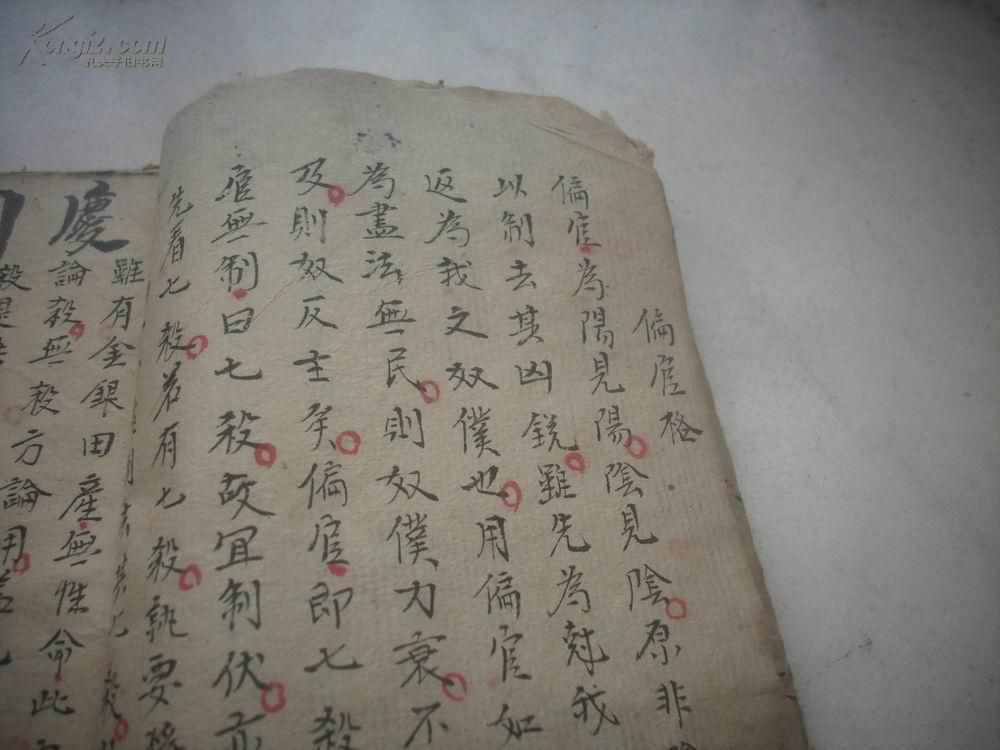 偏官格
偏官為陽見陽陰見陰原非
以制去其凶銳雖先為尅我
返為我之奴僕也用偏官如
為盡法無民則奴僕力衰不
及則奴反主矣偏官即七殺
官無制曰七殺故宜制伏亦
先看七殺若有七殺就要
雖有金銀田產無性命此
慶
論殺無殺方論用
Kongfz.com
孔夫子旧书网